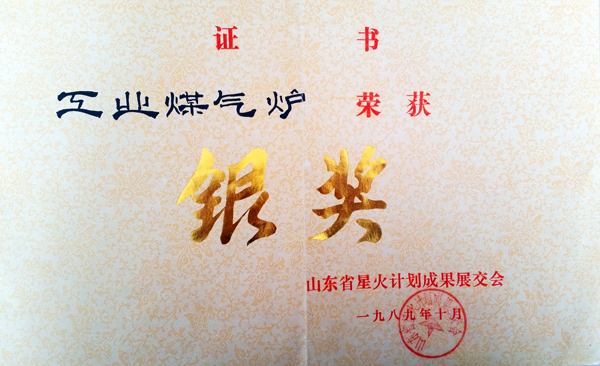 证书
工业煤气炉 荣获
银奖
山东省星火计划成果展交会
一九八九年十月